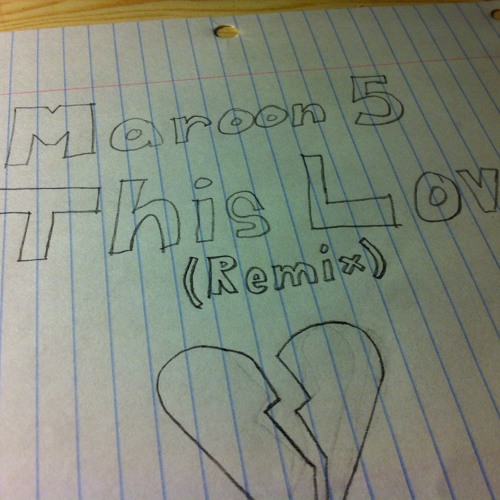 Maroon 5
This Lov
(Remix)